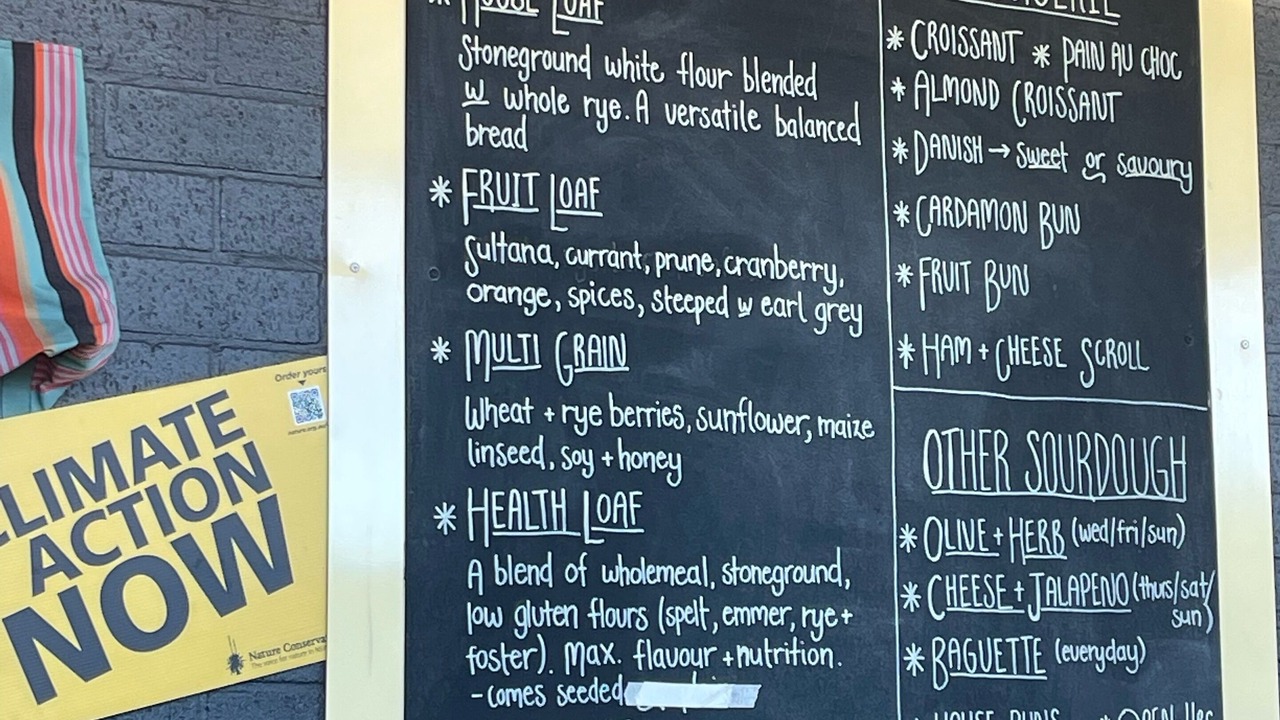 * HOUSE LOAF
Stoneground white flour blended
w whole rye. A versatile balanced
bread
* FRUIT LOAF
Sultana, currant, prune, cranberry,
orange, spices, steeped w earl grey
* MULTI GRAIN
Wheat + rye berries, sunflower, maize
linseed, soy + honey
* HEALTH LOAF
A blend of wholemeal, stoneground,
low gluten flours (spelt, emmer, rye +
foster). Max. flavour + nutrition.
- comes seeded
* CROISSANT * PAIN AU CHOC
* ALMOND CROISSANT
* DANISH → sweet or savoury
* CARDAMON BUN
* FRUIT BUN
* HAM + CHEESE SCROLL
OTHER SOURDOUGH
* OLIVE + HERB (wed/fri/sun)
* CHEESE + JALAPENO (thurs/sat/
sun)
* BAGUETTE (everyday)
HOUSE BUNS
Order yours
CLIMATE
ACTION
NOW
Nature Conserva
The voice for nature in